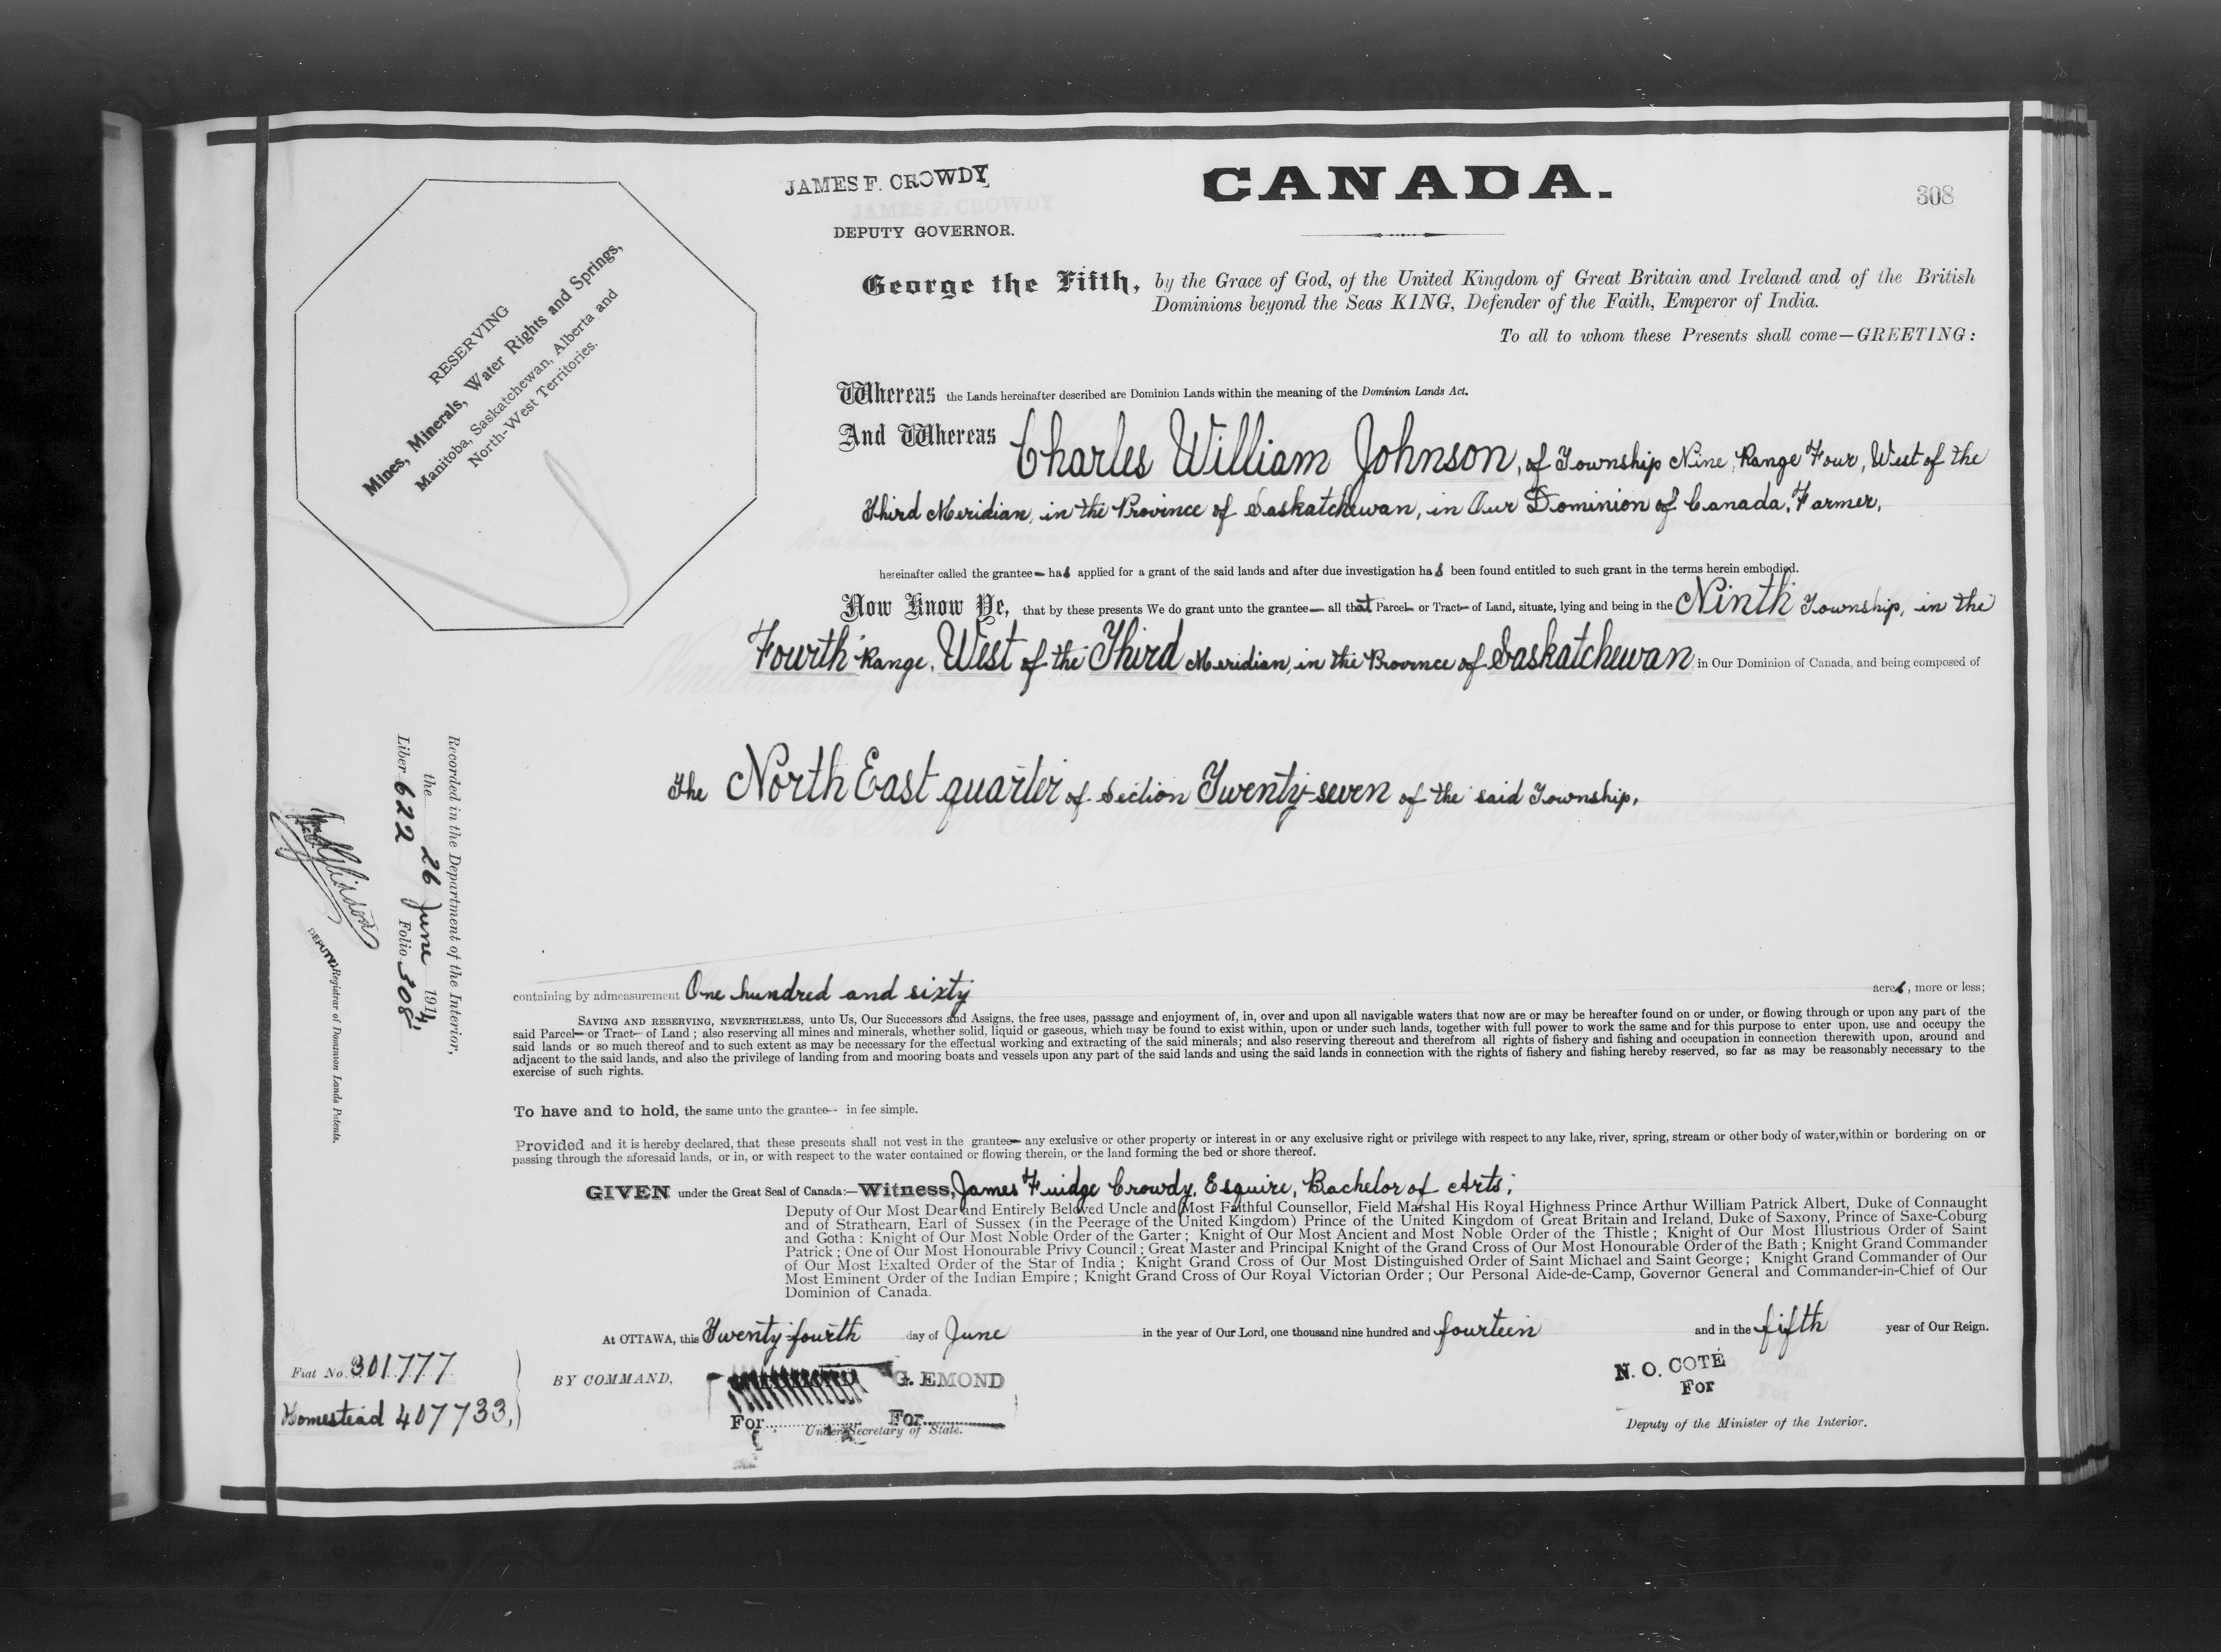 JAMES F. CROWDY
DEPUTY GOVERNOR.
CANADA.
308
RESERVING
Mines, Minerals, Water Rights and Springs,
Manitoba, Saskatchewan, Alberta and
North-West Territories.
George the Fifth, by the Grace of God, of the United Kingdom of Great Britain and Ireland and of the British
Dominions beyond the Seas KING, Defender of the Faith, Emperor of India.
To all to whom these Presents shall come—GREETING:
Whereas the Lands hereinafter described are Dominion Lands within the meaning of the Dominion Lands Act.
And Whereas Charles William Johnson, of Township Nine, Range Four, West of the
Third Meridian, in the Province of Saskatchewan, in Our Dominion of Canada, Farmer,
hereinafter called the grantee— has applied for a grant of the said lands and after due investigation has been found entitled to such grant in the terms herein embodied.
Now Know Ye, that by these presents We do grant unto the grantee— all that Parcel— or Tract— of Land, situate, lying and being in the Ninth Township, in the
Fourth Range, West of the Third Meridian, in the Province of Saskatchewan in Our Dominion of Canada, and being composed of
The North East quarter of Section Twenty-seven of the said Township,
Recorded in the Department of the Interior,
the 26 June 1914,
Liber 622 Folio 308
DEPUTY Registrar of Dominion Lands Patents.
containing by admeasurement One hundred and sixty acres, more or less;
SAVING AND RESERVING, NEVERTHELESS, unto Us, Our Successors and Assigns, the free uses, passage and enjoyment of, in, over and upon all navigable waters that now are or may be hereafter found on or under, or flowing through or upon any part of the
said Parcel— or Tract— of Land; also reserving all mines and minerals, whether solid, liquid or gaseous, which may be found to exist within, upon or under such lands, together with full power to work the same and for this purpose to enter upon, use and occupy the
said lands or so much thereof and to such extent as may be necessary for the effectual working and extracting of the said minerals; and also reserving thereout and therefrom all rights of fishery and fishing and occupation in connection therewith upon, around and
adjacent to the said lands, and also the privilege of landing from and mooring boats and vessels upon any part of the said lands and using the said lands in connection with the rights of fishery and fishing hereby reserved, so far as may be reasonably necessary to the
exercise of such rights.
To have and to hold, the same unto the grantee— in fee simple.
Provided and it is hereby declared, that these presents shall not vest in the grantee— any exclusive or other property or interest in or any exclusive right or privilege with respect to any lake, river, spring, stream or other body of water, within or bordering on or
passing through the aforesaid lands, or in, or with respect to the water contained or flowing therein, or the land forming the bed or shore thereof.
GIVEN under the Great Seal of Canada:—Witness, James Fuidge Crowdy, Esquire, Bachelor of Arts;
Deputy of Our Most Dear and Entirely Beloved Uncle and Most Faithful Counsellor, Field Marshal His Royal Highness Prince Arthur William Patrick Albert, Duke of Connaught
and of Strathearn, Earl of Sussex (in the Peerage of the United Kingdom) Prince of the United Kingdom of Great Britain and Ireland, Duke of Saxony, Prince of Saxe-Coburg
and Gotha: Knight of Our Most Noble Order of the Garter; Knight of Our Most Ancient and Most Noble Order of the Thistle; Knight of Our Most Illustrious Order of Saint
Patrick; One of Our Most Honourable Privy Council; Great Master and Principal Knight of the Grand Cross of Our Most Honourable Order of the Bath; Knight Grand Commander
of Our Most Exalted Order of the Star of India; Knight Grand Cross of Our Most Distinguished Order of Saint Michael and Saint George; Knight Grand Commander of Our
Most Eminent Order of the Indian Empire; Knight Grand Cross of Our Royal Victorian Order; Our Personal Aide-de-Camp, Governor General and Commander-in-Chief of Our
Dominion of Canada.
At OTTAWA, this Twenty-fourth day of June in the year of Our Lord, one thousand nine hundred and fourteen and in the fifth year of Our Reign.
Fiat No. 301777
Homestead 407733,
BY COMMAND,
G. EMOND
For For
Under Secretary of State.
N. O. COTÉ
For
Deputy of the Minister of the Interior.